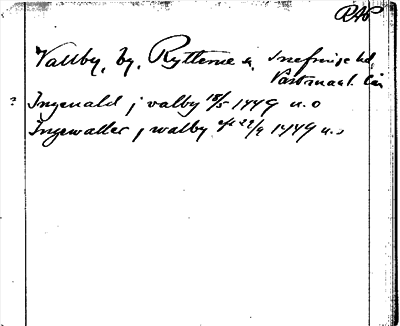 RAP
Vallby, by, Rytterne sn, Snefringe hd,
Västmanl. län
? Ingeuald j valby 18/5 1449 u. o
Ingewaller j walby eft 22/9 1449 u. o